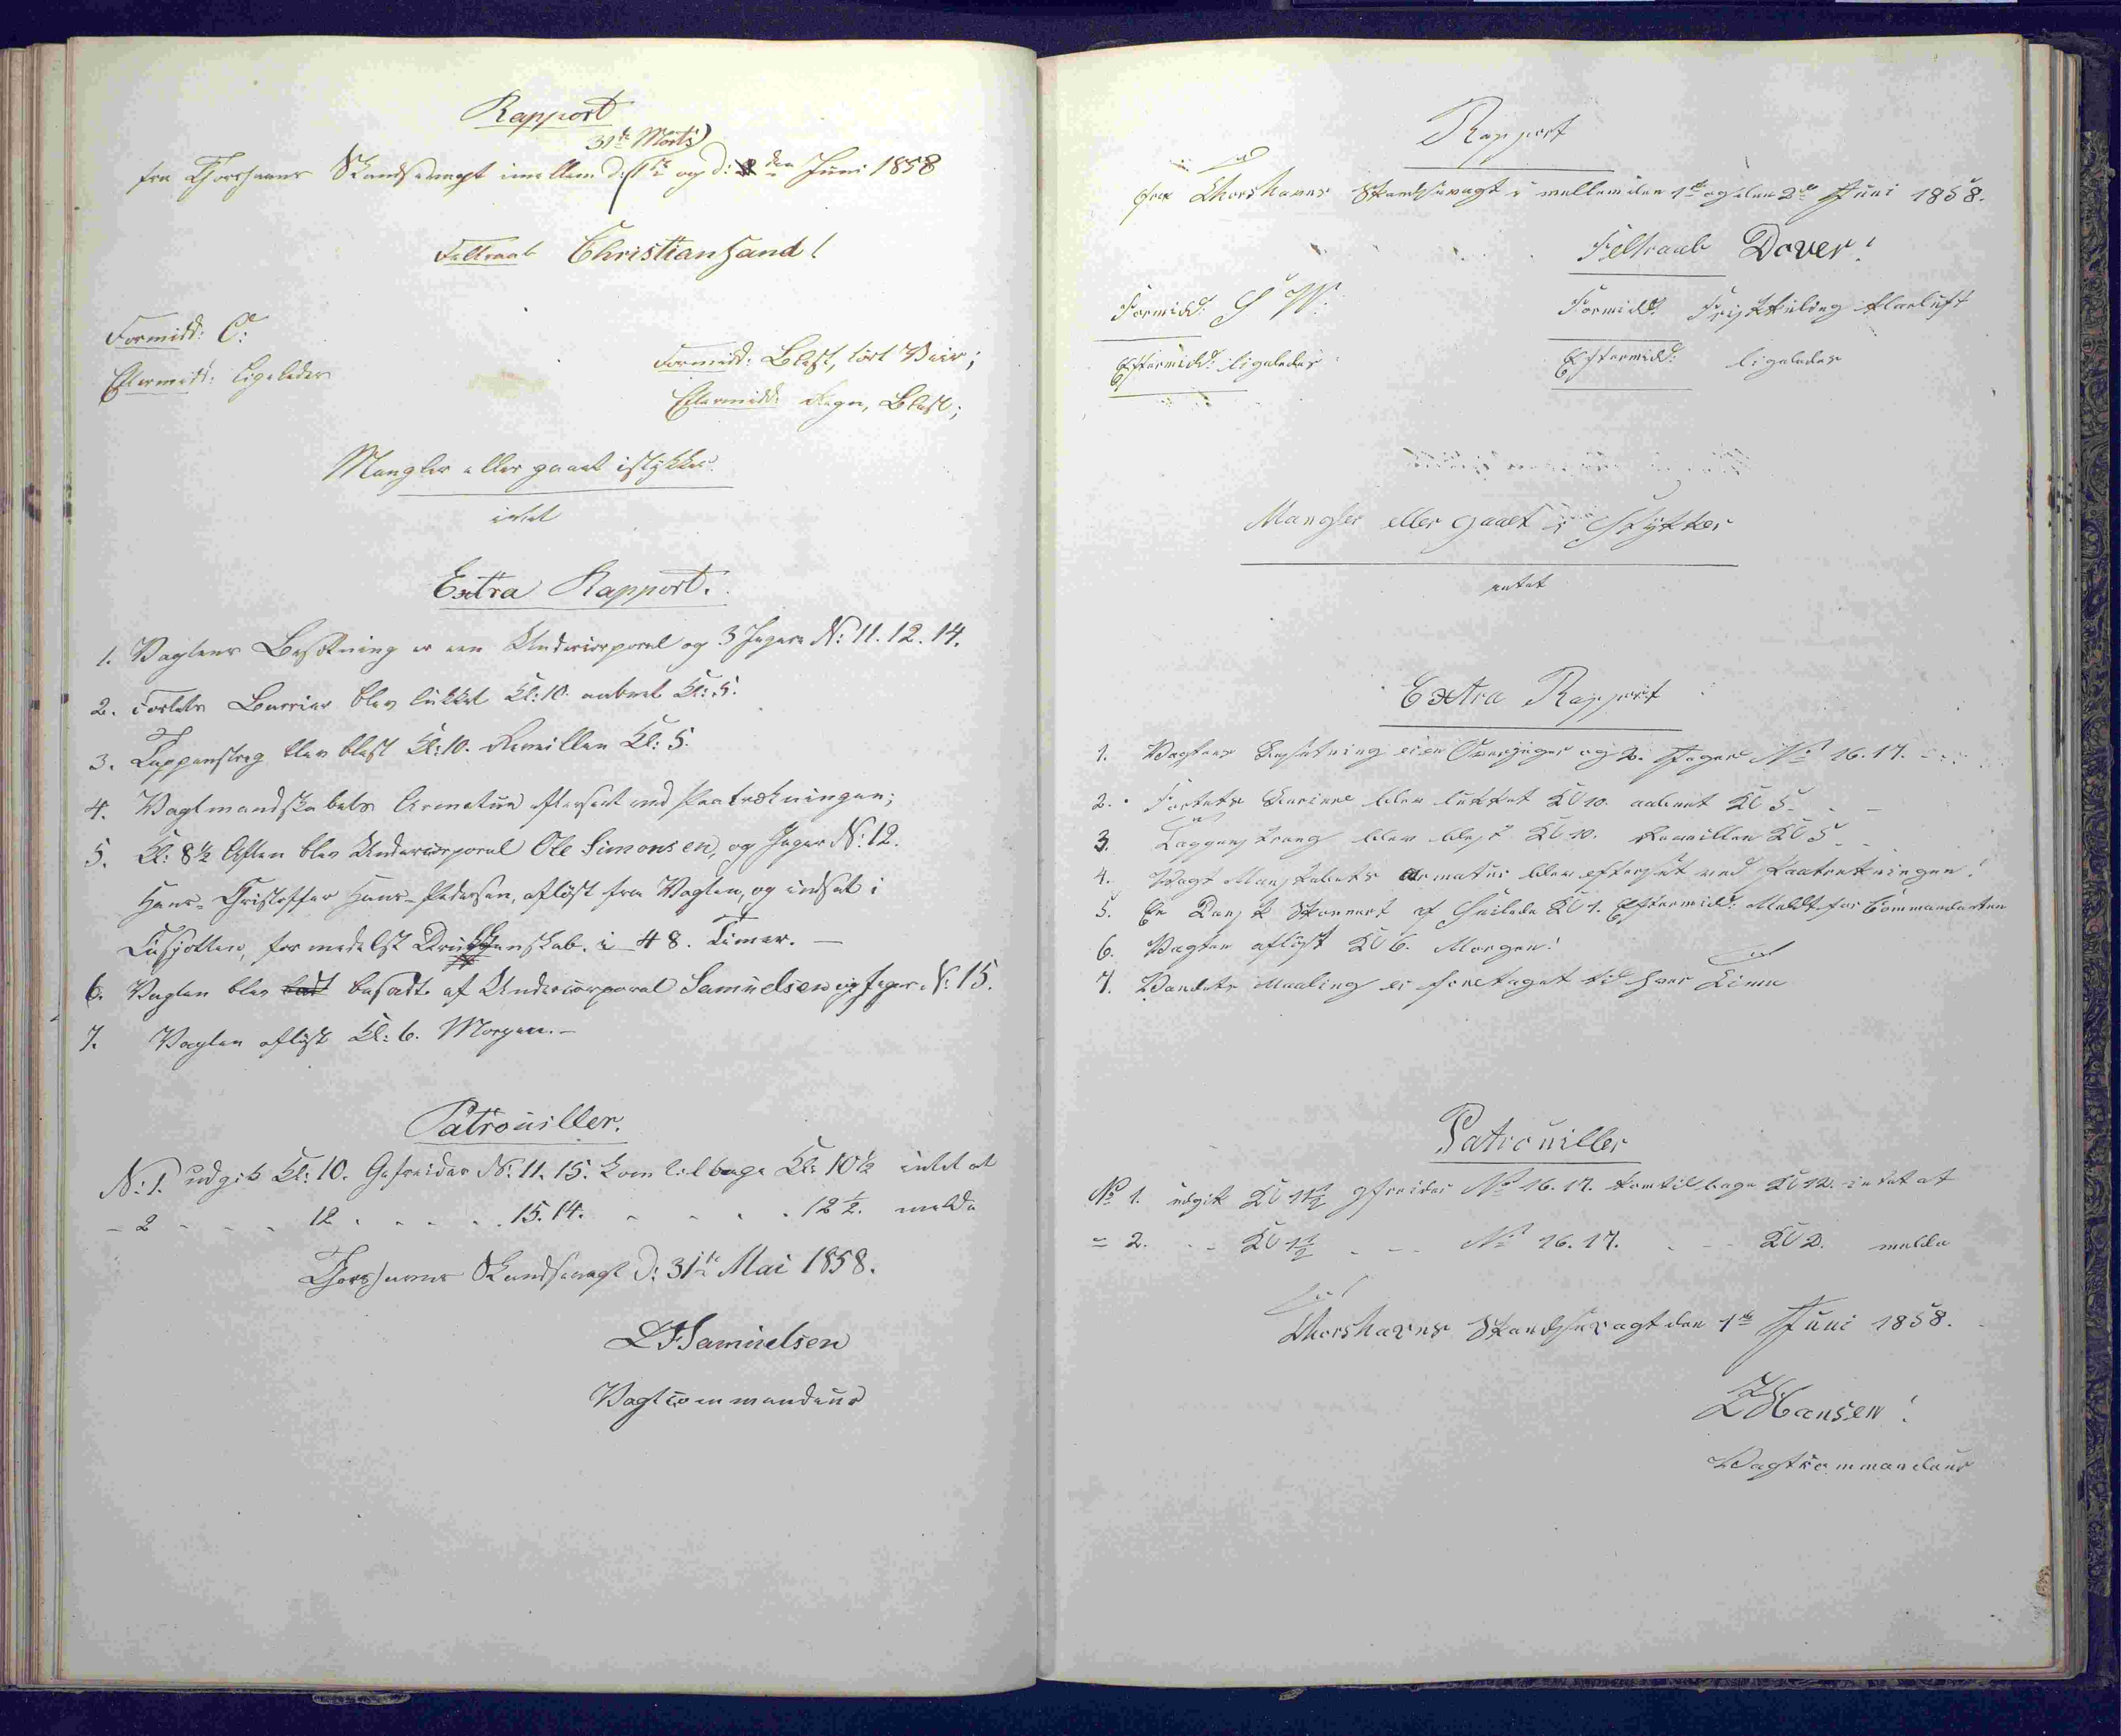 Rapport
31te Marts
fra Thorshavns Skandsevagt imellem d: 1te og d: 2den Juni 1858
Feltraab Christiansand!
Formidd: O:
Eftermidd: ligeledes
Formidd: Blæst, tört Veir;
Eftermidd: Regn, Blæst;
Mangler eller gaaet istykker
intet
Extra Rapport.
1. Vagtens Besætning er een Undercorporal og 3 Jægere N: 11. 12. 14.
2. Fortets Barrier blev lukket Kl: 10. aabnet Kl: 5.
3. Tappenstreg blev blæst Kl: 10. Reveillen Kl: 5.
4. Vagtmandskabets Armatur efterseet ved Paatrækningen;
5. Kl: 8½ Aften blev Undercorporal Ole Simonsen, og Jæger N: 12.
Hans-Christoffer Hans-Pedersen, aflöst fra Vagten, og indsat i
formedelst Drukkenskab. i 48. Timer. —
6. Vagten blev besadt af Undercorporal Samuelsen og Jæger N: 15.
7. Vagten aflöst Kl: 6. Morgen. —
Patrouiller.
N: 1. udgik Kl: 10. Gefreider N: 11. 15. kom tilbage Kl: 10½ intet at
- 2 - - - 12 - - - - 15. 14. - - - - 12½. melde
Thorshavns Skandsevagt d: 31te Mai 1858.
Samuelsen
Vagtcommandeur
Rapport
fra Thorshavns Skandsevagt i mellem den 1te og den 2den Juni 1858.
Feltraab Dover!
Formidd: S W:
Formidd: Frisk Kuling klarluft
Eftermidd: ligeledes
Eftermidd: ligeledes
Mangler eller gaaet i Stykker
intet
Extra Rapport
1. Vagtens Besætning er en Overjæger og 2. Jægere No 16. 17.
2. Fortets Bariere blev lukket Kl 10. aabnet Kl 5.
3. Tappenstreng blev blæst Kl 10. Reveillen Kl 5
4. Vagt Manskabets Armatur blev efterset ved Paatrekningen!
5. En Dansk Skonnert Kl 1. Eftermidd: Meldt for Commandanten
6. Vagten aflöst Kl 6. Morgen!
7. Vandets Maaling er foretaget til hver Time
Patrouiller
No 1. udgik Kl 11½ gfreider No 16. 17. kom tilbage Kl 12. intet at
= 2. - - Kl 1½ - - - No 16. 17. - - Kl 2. melde
Thorshavns Skandsevagt den 1te Juni 1858.
Hansen!
Vagtkommandeur